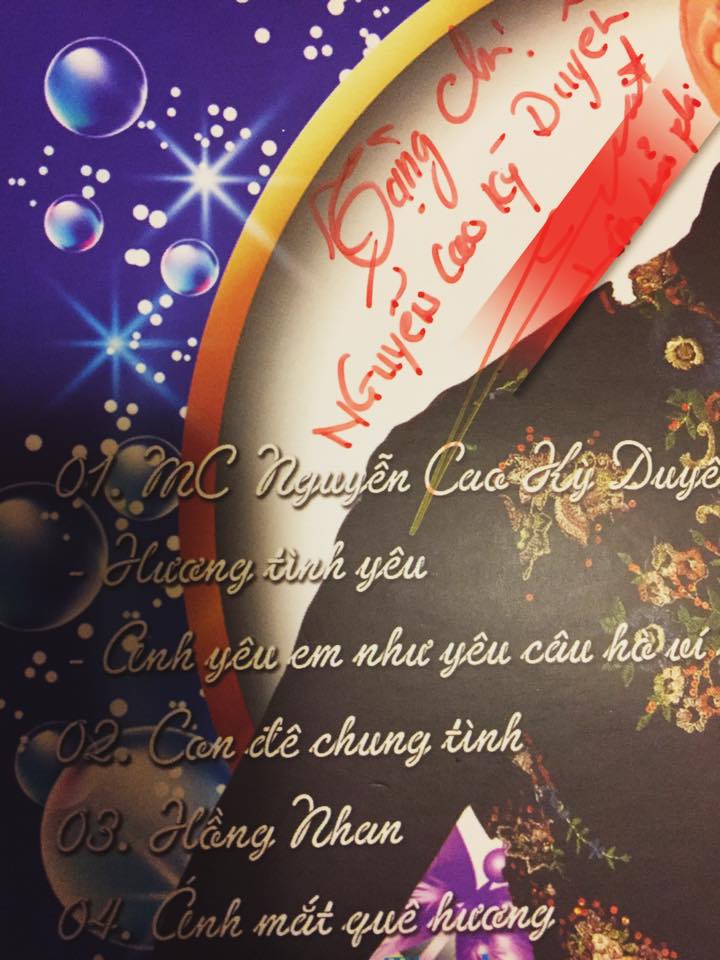 Tặng Chị.
Nguyễn Cao Kỳ Duyên
01. MC Nguyễn Cao Kỳ Duyê
- Hương tình yêu
- Anh yêu em như yêu câu hò ví
02. Con đê chung tình
03. Hồng Nhan
04. Ánh mắt quê hương